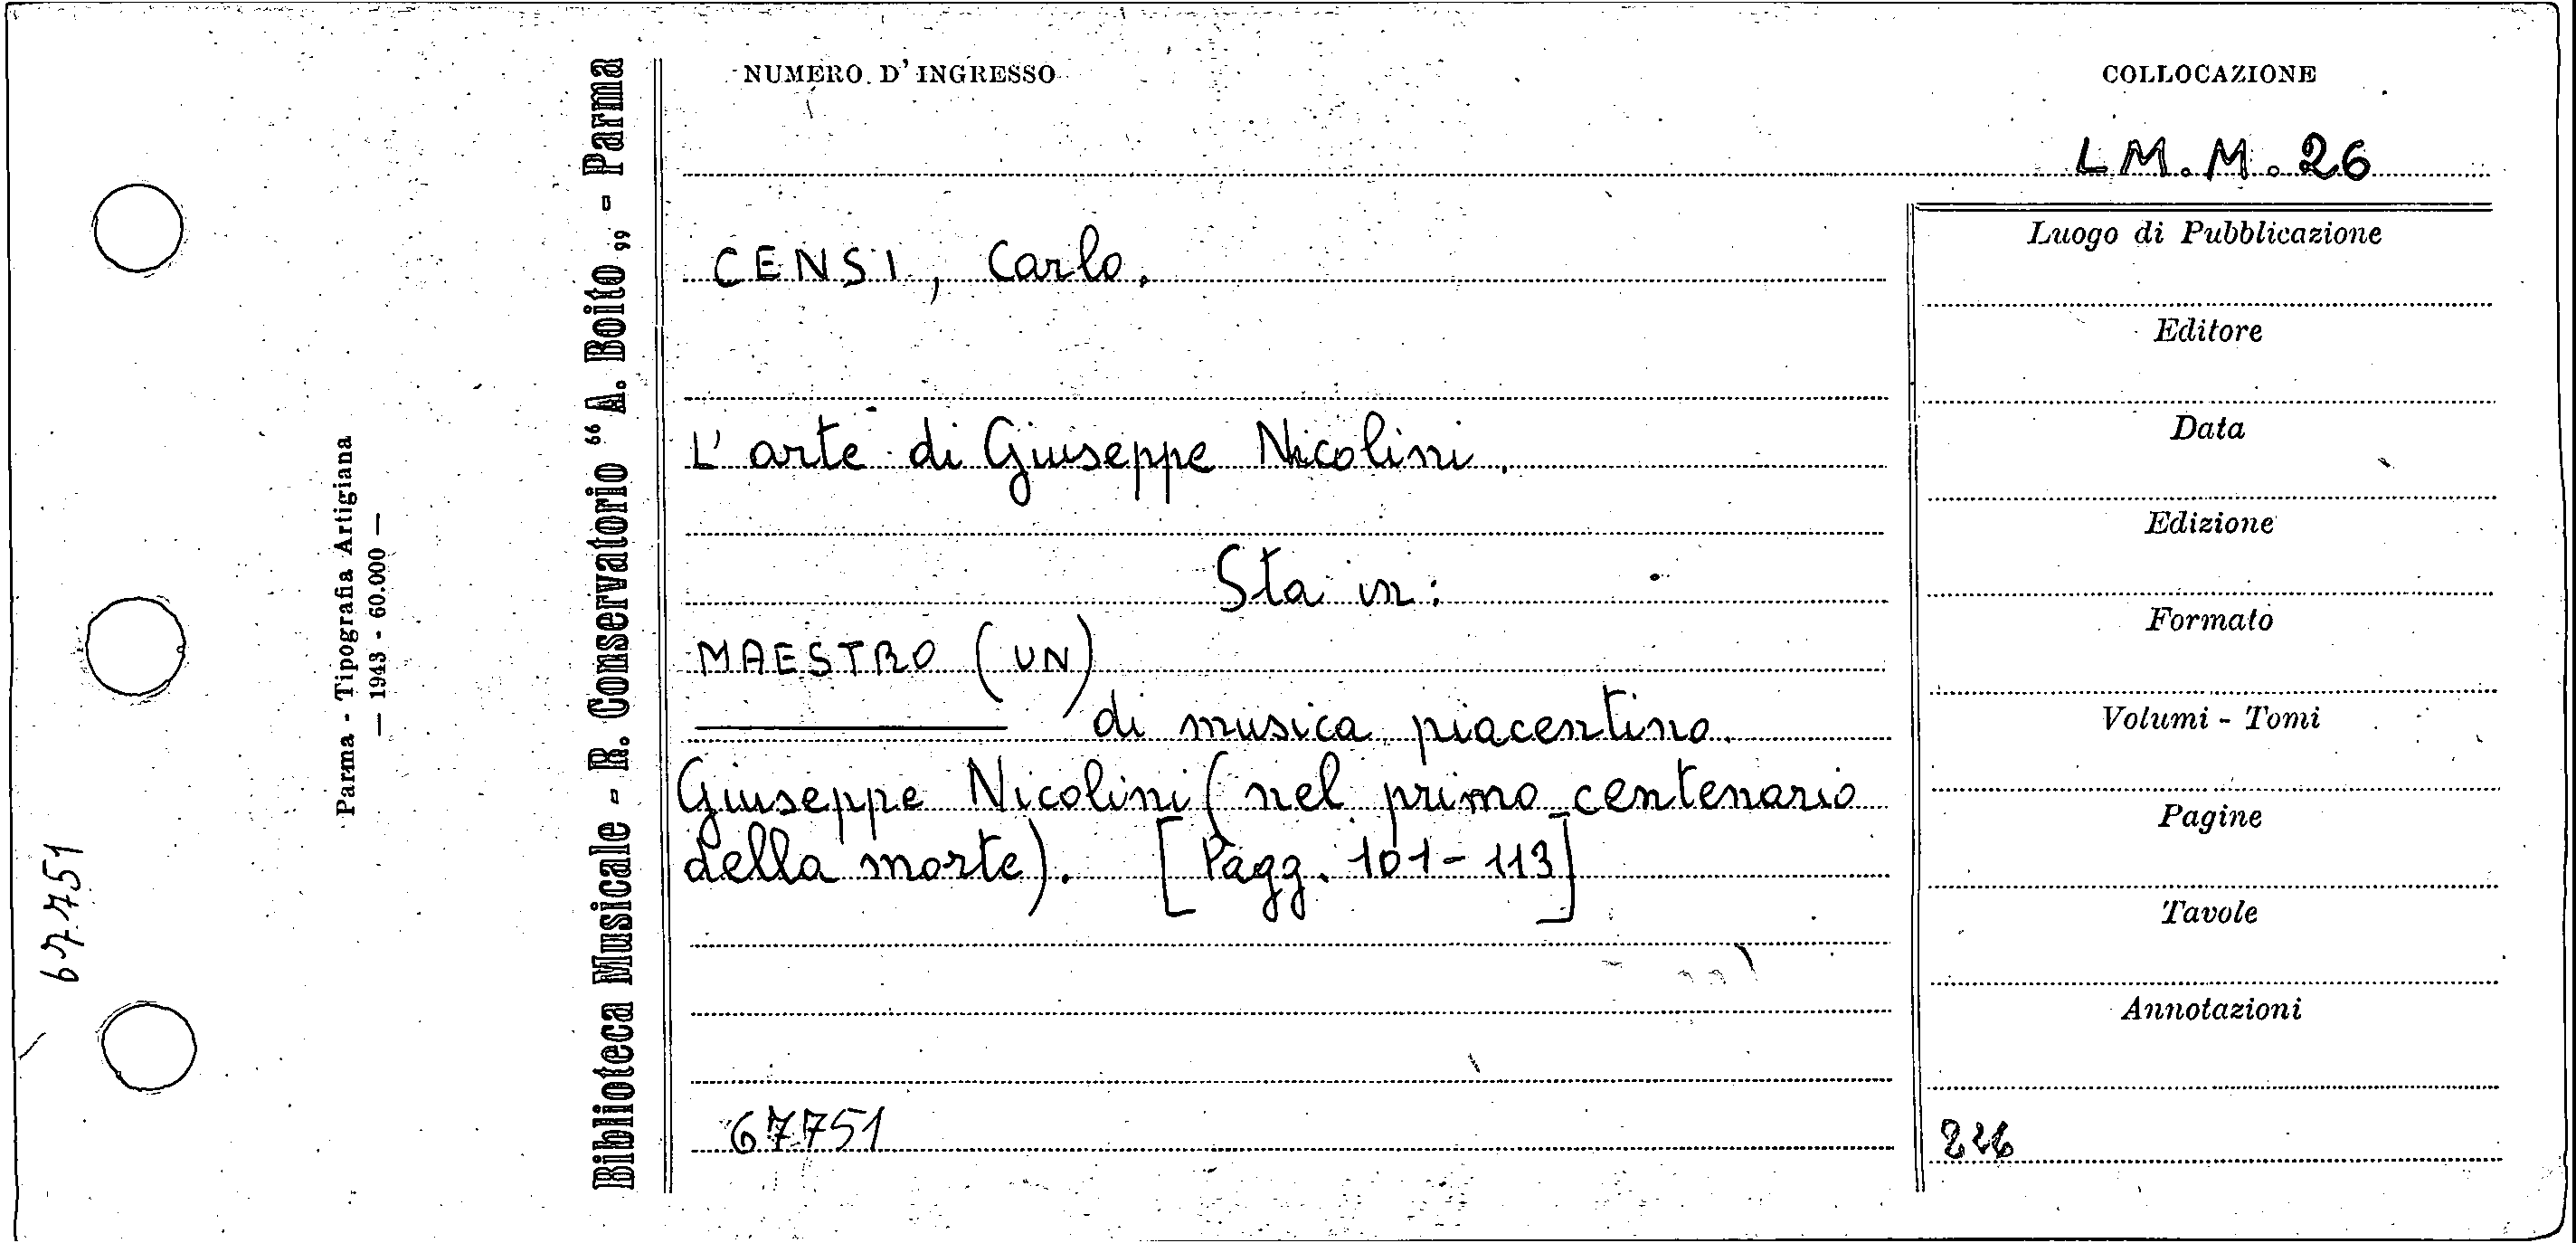 NUMERO D'INGRESSO
COLLOCAZIONE
LM.M.26
CENSI, Carlo.
L'arte di Giuseppe Nicolini.
Sta in:
MAESTRO (UN)
di musica piacentino.
Giuseppe Nicolini (nel primo centenario
della morte). [Pagg. 101-113]
67751
Luogo di Pubblicazione
Editore
Data
Edizione
Formato
Volumi - Tomi
Pagine
Tavole
Annotazioni
Biblioteca Musicale - R. Conservatorio “A. Boito„ - Parma
Parma - Tipografia Artigiana
— 1943 - 60.000 —
67751